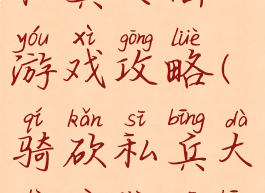 yóu xì gōng lüè
游戏攻略(
qí kǎn sī bīng dà
骑砍私兵大